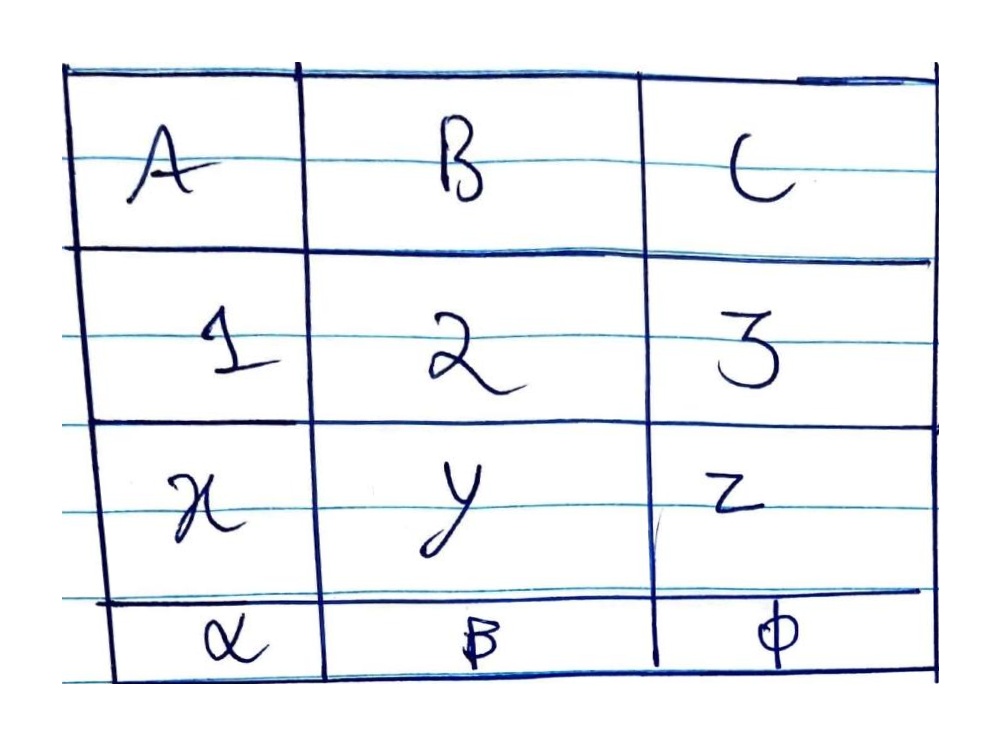 A B C
1 2 3
x y z
α β φ